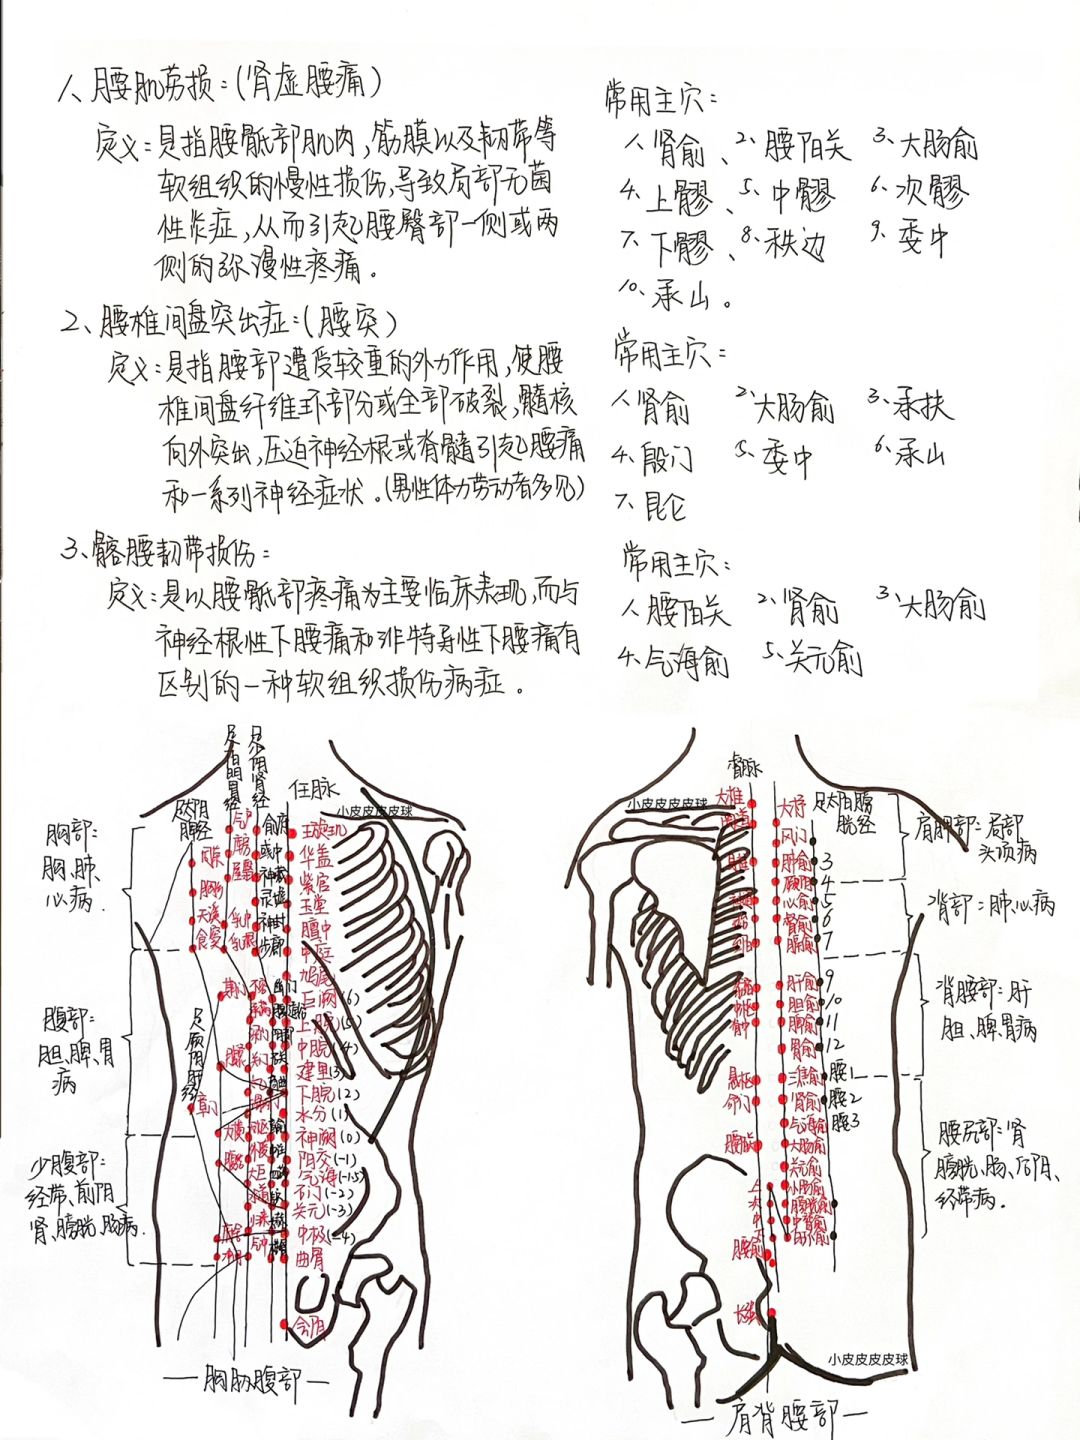 1、腰肌劳损:(肾虚腰痛)
定义:是指腰骶部肌肉,筋膜以及韧带等
软组织的慢性损伤,导致局部无菌
性炎症,从而引起腰臀部一侧或两
侧的弥漫性疼痛。
常用主穴:
1、肾俞、2、腰阳关 3、大肠俞
4、上髎、5、中髎 6、次髎
7、下髎、8、秩边 9、委中
10、承山。
2、腰椎间盘突出症:(腰突)
定义:是指腰部遭受较重的外力作用,使腰
椎间盘纤维环部分或全部破裂,髓核
向外突出,压迫神经根或脊髓引起腰痛
和一系列神经症状。(男性体力劳动者多见)
常用主穴:
1、肾俞 2、大肠俞 3、承扶
4、殷门 5、委中 6、承山
7、昆仑
3、髂腰韧带损伤:
定义:是以腰骶部疼痛为主要临床表现,而与
神经根性下腰痛和非特异性下腰痛有
区别的一种软组织损伤病症。
常用主穴:
1、腰阳关 2、肾俞 3、大肠俞
4、气海俞 5、关元俞
足阳明胃经
足少阴肾经
任脉
小皮皮皮皮球
胸部:
胸、肺、
心病.
腹部:
胆、脾、胃
病
少腹部:
经带、前阴
肾、膀胱、肠病.
足厥阴肝经
气户
库房
屋翳
乳中
乳根
俞府
或中
神藏
灵墟
神封
步廊
天溪
食窦
期门
章门
大横
归来
璇玑
华盖
紫宫
玉堂
膻中
中庭
鸠尾
巨阙(6)
上脘(5)
中脘(4)
建里(3)
下脘(2)
水分(1)
神阙(0)
阴交(-1)
气海(-1.5)
石门(-2)
关元(-3)
中极(-4)
曲骨
会阴
—胸胁腹部—
督脉
足太阳膀
胱经
小皮皮皮皮球
大椎
悬枢
命门
腰俞
长强
大杼
风门
肺俞 3
厥阴 4
心俞 5
督俞 6
膈俞 7
肝俞 9
胆俞 10
脾俞 11
胃俞 12
三焦俞 腰1
肾俞 腰2
气海俞 腰3
大肠俞
关元俞
小肠俞
膀胱俞
中膂俞
白环俞
上
次
中
下
肩胛部:局部
头项病
背部:肺、心病
背腰部:肝
胆、脾、胃病
腰尻部:肾
膀胱、肠、后阴、
经带病.
小皮皮皮皮球
—肩背腰部—